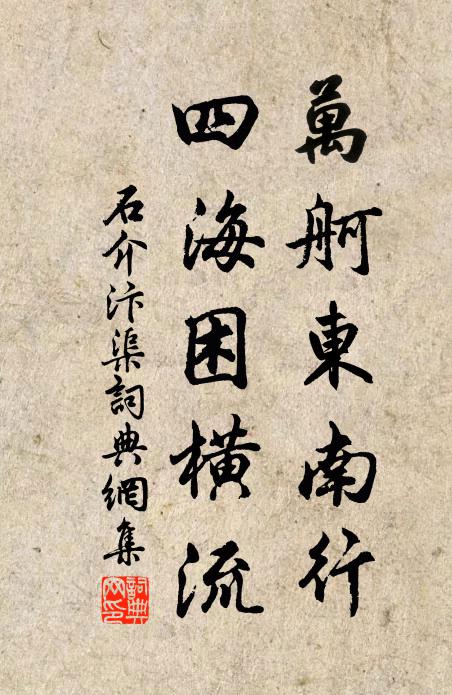 萬舸東南行
四海困橫流
石介汴渠詞典網集
詞典
網印